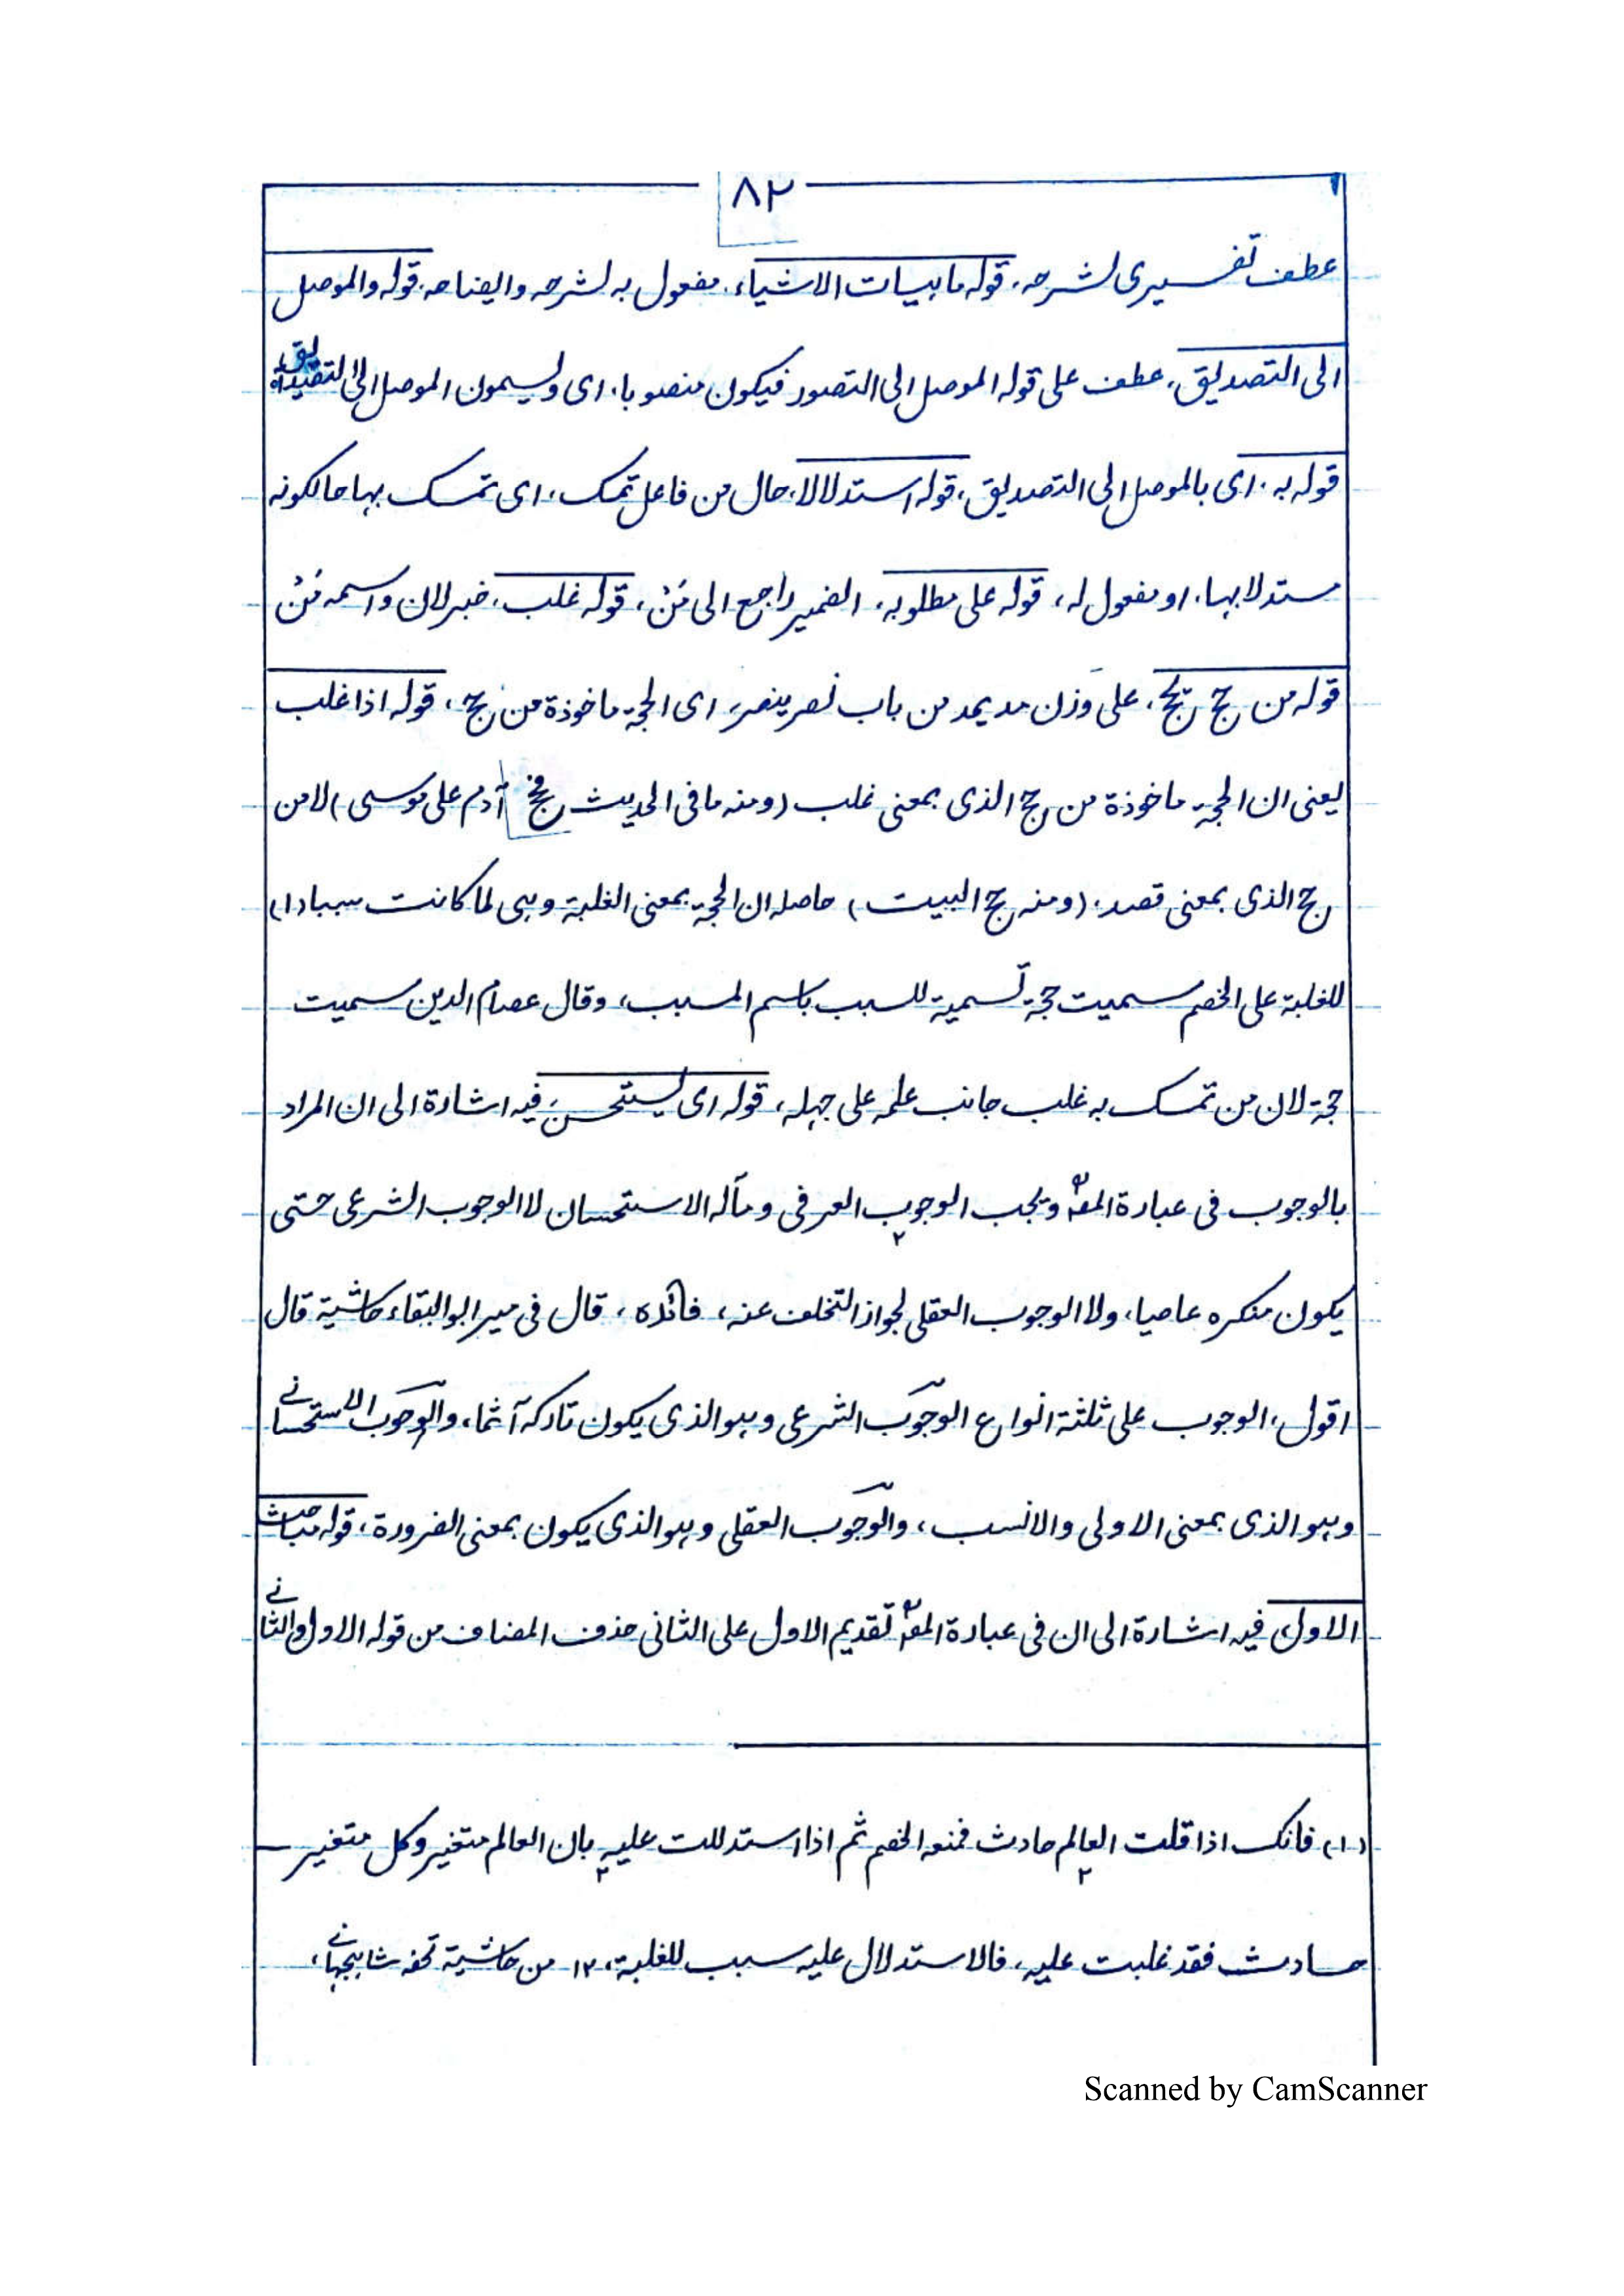 ٨٢
عطف تفسيرى لشرحه، قوله ماهيات الاشياء، مفعول به لشرحه وايضاحه، قوله والموصل
الى التصديق، عطف على قوله الموصل الى التصور فيكون منصوبا، اى ويسمون الموصل الى التصديق
قوله به، اى بالموصل الى التصديق، قوله استدلالا، حال من فاعل تمسك، اى تمسك بها حالكونه
مستدلا بها، او مفعول له، قوله على مطلوبه، الضمير راجع الى مَنْ، قوله غلب، خبر لان واسمه مَنْ
قوله من حج يحج، على وزن مد يمد من باب نصر ينصر، اى الحجة ماخوذة من حج، قوله اذا غلب
يعنى ان الحجة ماخوذة من حج الذى بمعنى غلب (ومنه ما فى الحديث فحج آدم على موسى) لا من
حج الذى بمعنى قصد، (ومنه حج البيت) حاصله ان الحجة بمعنى الغلبة وهى لما كانت سببا (١)
للغلبة على الخصم سميت حجة تسمية للسبب باسم المسبب، وقال عصام الدين سميت
حجة لان من تمسك به غلب جانب علمه على جهله، قوله اى يستحسن، فيه اشارة الى ان المراد
بالوجوب فى عبارة المصؒ ويجب الوجوب العرفى ومآله الاستحسان لا الوجوب الشرعى حتى
يكون منكره عاصيا، ولا الوجوب العقلى لجواز التخلف عنه، فائده، قال فى مير ابو البقاء حاشية قال
اقول، الوجوب على ثلثة انواع الوجوب الشرعى وهو الذى يكون تاركه آثما، والوجوب الاستحسانے
وهو الذى بمعنى الاولى والانسب، والوجوب العقلى وهو الذى يكون بمعنى الضرورة، قوله مباحث
الاول، فيه اشارة الى ان فى عبارة المصؒ تقديم الاول على الثانى حذف المضاف من قوله الاول والثانے
(١) فانك اذا قلت العالم حادث فمنعه الخصم ثم اذا استدللت عليه بان العالم متغير وكل متغير
حادث فقد غلبت عليه، فالاستدلال عليه سبب للغلبة، ١٢ من حاشية تحفه شاہجہانے،
Scanned by CamScanner